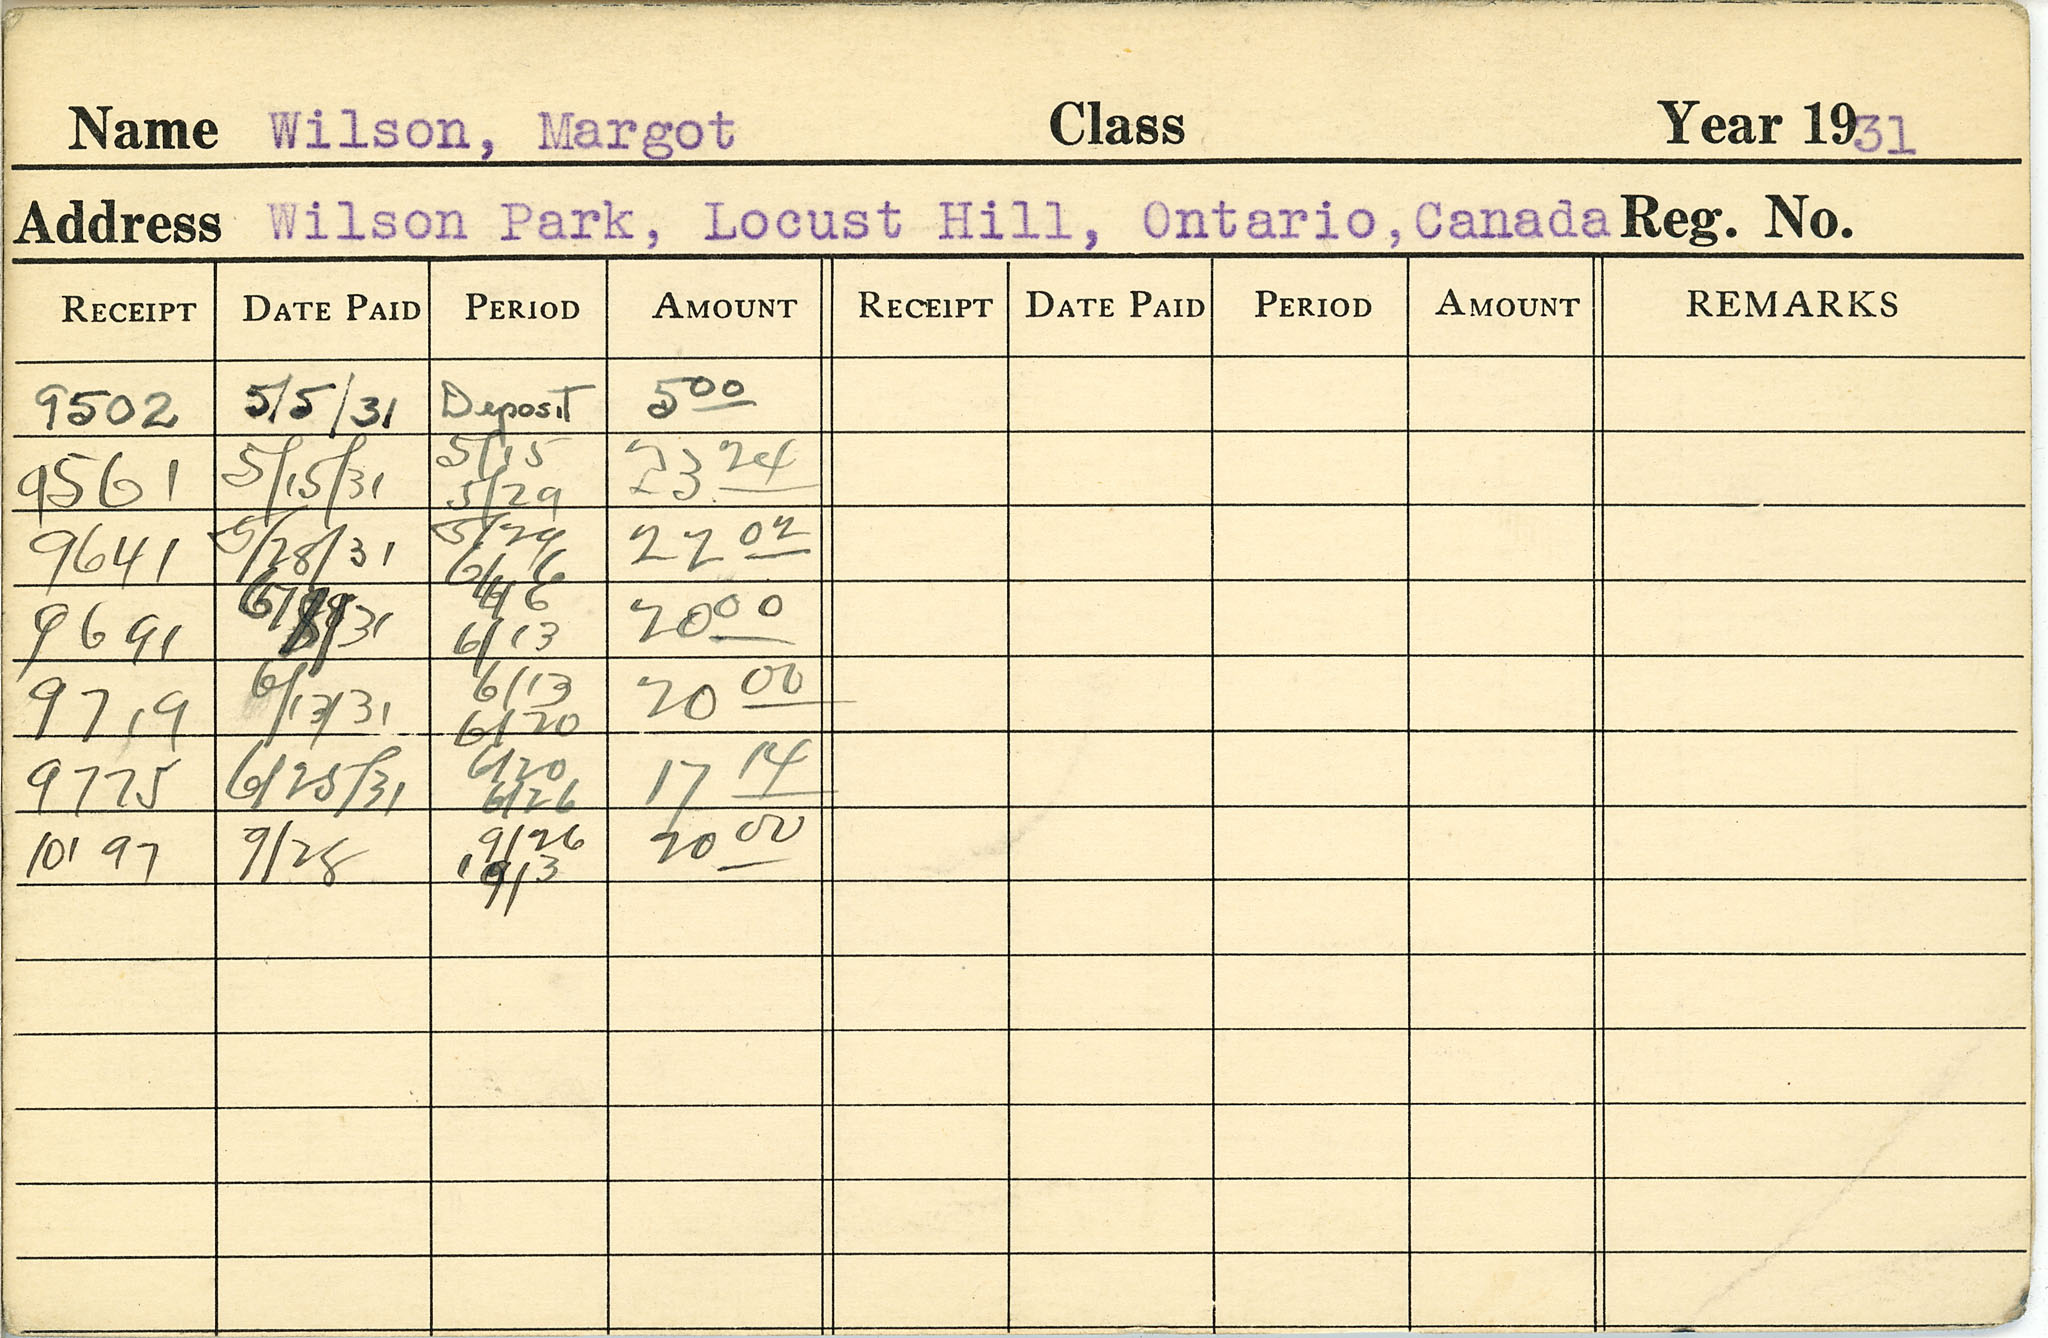 Name Wilson, Margot Class Year 1931
Address Wilson Park, Locust Hill, Ontario, Canada Reg. No.
RECEIPT DATE PAID PERIOD AMOUNT RECEIPT DATE PAID PERIOD AMOUNT REMARKS
9502 5/5/31 Deposit 5 00
9561 5/15/31 5/15 5/29 23 24
9641 5/28/31 5/29 6/6 22 02
9691 6/ /31 6/6 6/13 20 00
9719 6/13/31 6/13 6/20 20 00
9775 6/25/31 6/20 6/26 17 14
10197 9/28 9/26 10/3 20 00